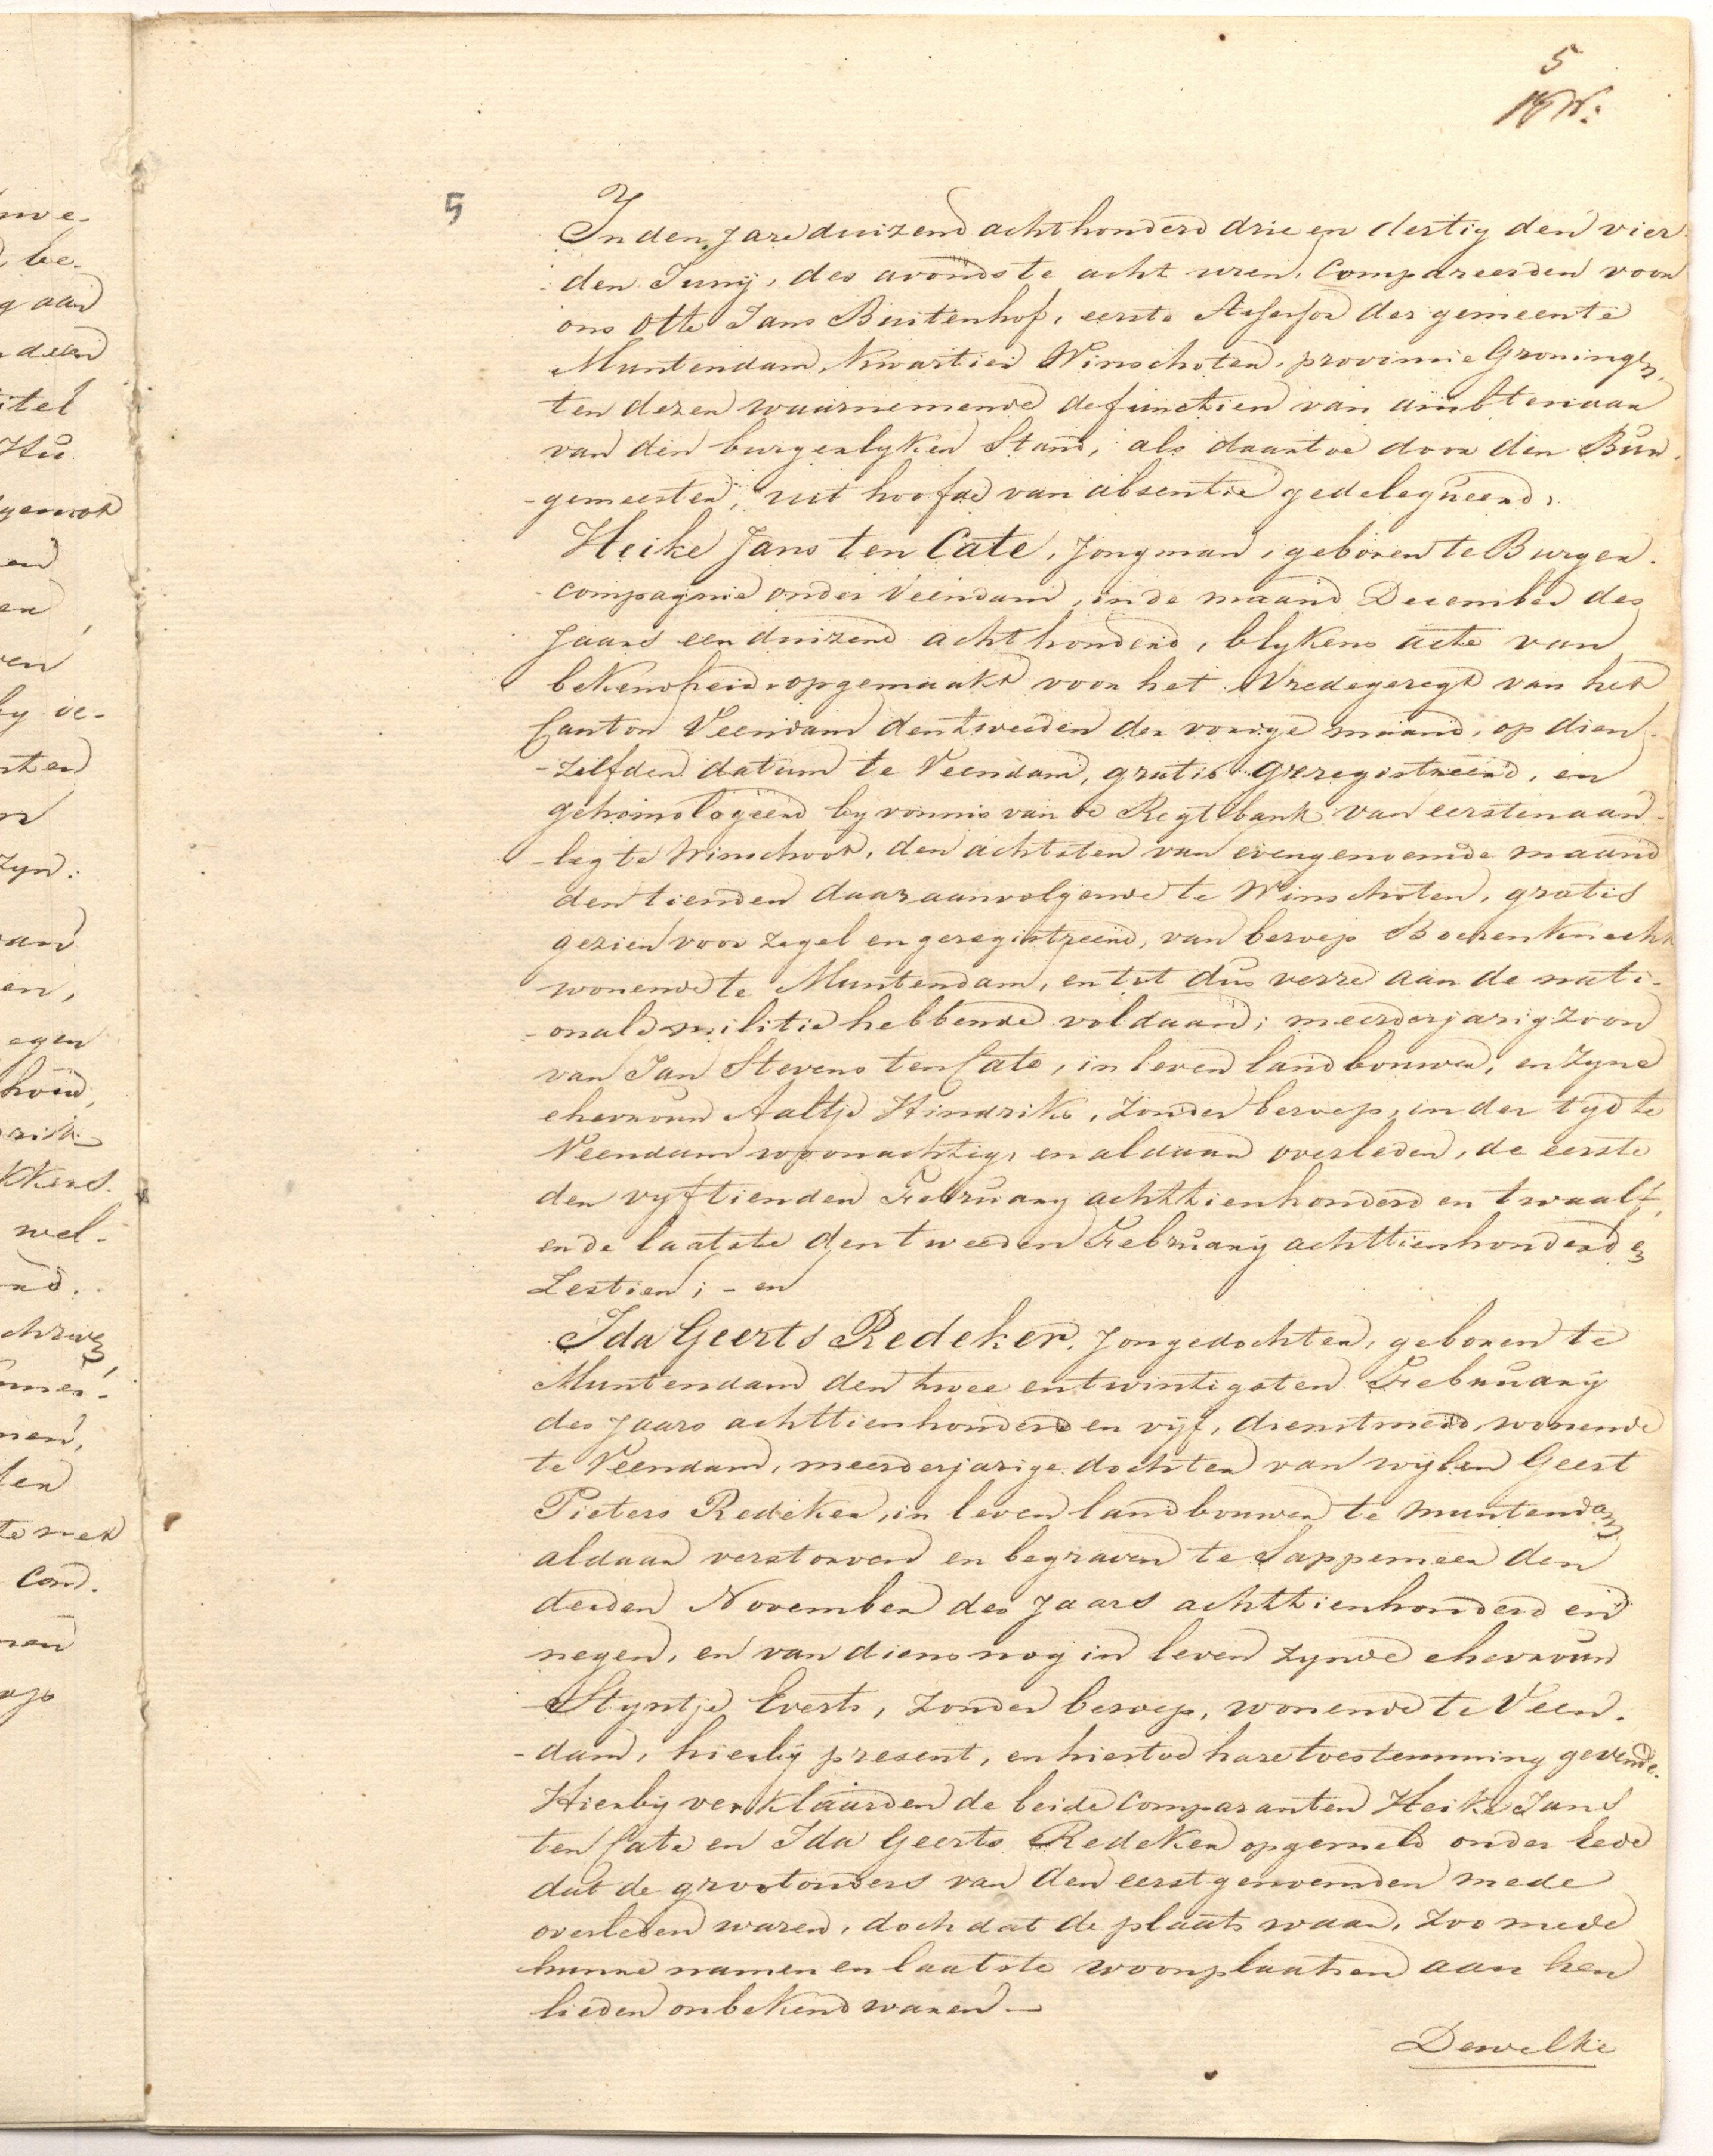 5
5
In den jare duizend achthonderd drie en dertig den vier-
den Juny, des avonds te acht uren, compareerden voor
ons Otte Jans Buitenhof, eerste Assessor der gemeente
Muntendam, Kwartier Winschoten, provincie Groningen,
ten dezen waarnemende de functien van ambtenaar
van den burgerlyken Stand, als daartoe door den Bur-
-gemeester, uit hoofde van absentie gedelegueerd,
Heike Jans ten Cate, Jongman, geboren te Burger-
-compagnie onder Veendam, in de maand December des
jaars een duizend achthonderd, blykens acte van
bekendheid opgemaakt voor het Vredegeregt van het
Canton Veendam den tweeden der vorige maand, op dien-
-zelfden datum te Veendam, gratis geregistreerd, en
gehomologeerd by vonnis van de Regtbank van eersten aan-
-leg te Winschoot, den achtsten van evengenoemde maand
den tienden daaraanvolgende te Winschoten, gratis
gezien voor zegel en geregistreerd, van beroep Boerenknecht
wonende te Muntendam, en tot dus verre aan de nati-
-onale militie hebbende voldaan; meerderjarig zoon
van Jan Stevens ten Cate, in leven landbouwer, en zyne
ehevrouw Aaltje Hindriks, zonder beroep, in der tyd te
Veendam woonachtig, en aldaar overleden, de eerste
den vyftienden February achttienhonderd en twaalf,
en de laatste den tweeden February achttienhonderd en
Zestien; - en
Ida Geerts Redeker, Jongedochter, geboren te
Muntendam den twee en twintigsten February
des jaars achttienhonderd en vyf, dienstmeid, wonende
te Veendam, meerderjarige dochter van wylen Geert
Pieters Redeker, in leven landbouwer te Muntendam
aldaar verstorven en begraven te Sappemeer den
derden November des jaars achttienhonderd en
negen, en van diens nog in leven zynde ehevrouw
Styntje Everts, zonder beroep, wonende te Veen-
-dam, hierby present, en hiertoe hare toestemming gevende.
Hierby verklaarden de beide comparanten Heike Jans
ten Cate en Ida Geerts Redeker opgemeld onder Eede
dat de grootouders van den eerstgenoemden mede
overleden waren, doch dat de plaats waar, zoo mede
hunne namen en laatste woonplaatsen aan hen
lieden onbekend waren —
Dewelke